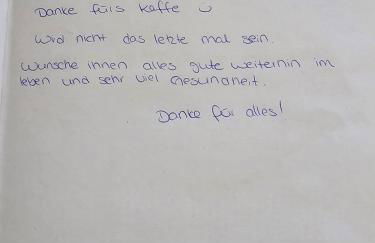 Danke fürs kaffe ☺
Wird nicht das letzte mal sein.
Wünsche ihnen alles gute weiterhin im
leben und sehr viel Gesundheit.
Danke für alles!